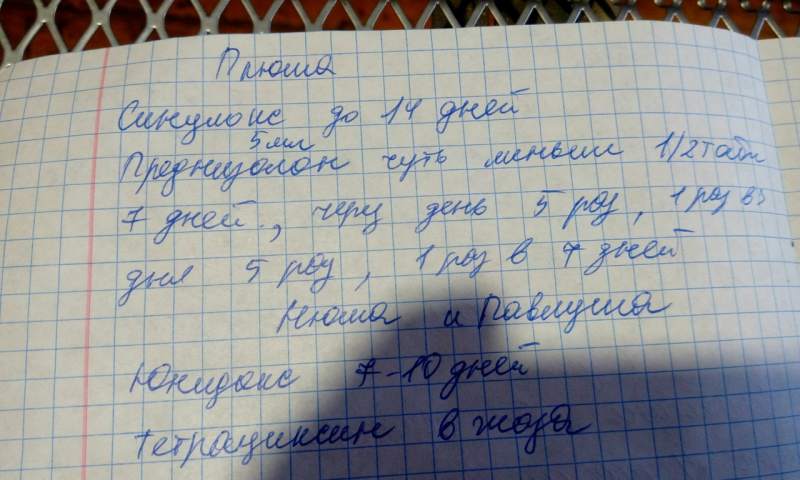 Прюша
Синулокс до 14 дней
5 мл
Преднизолон чуть меньше 1/2 табл
7 дней, через день 5 раз, 1 раз в 3
дня 5 раз, 1 раз в 7 дней
Нюша и Павлуша
Юнидокс 7-10 дней
Тетрациклин в глаза